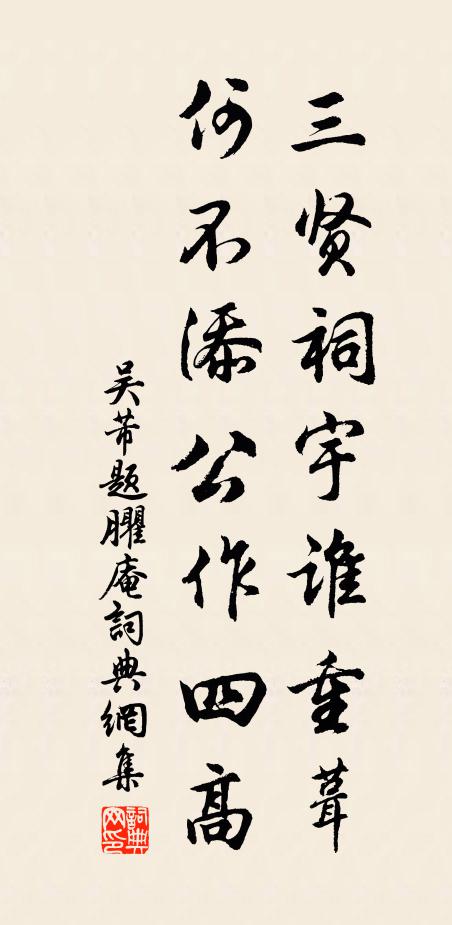 三贤祠宇谁重葺
何不添公作四高
吴芾题臞庵詞典網集
詞典网印